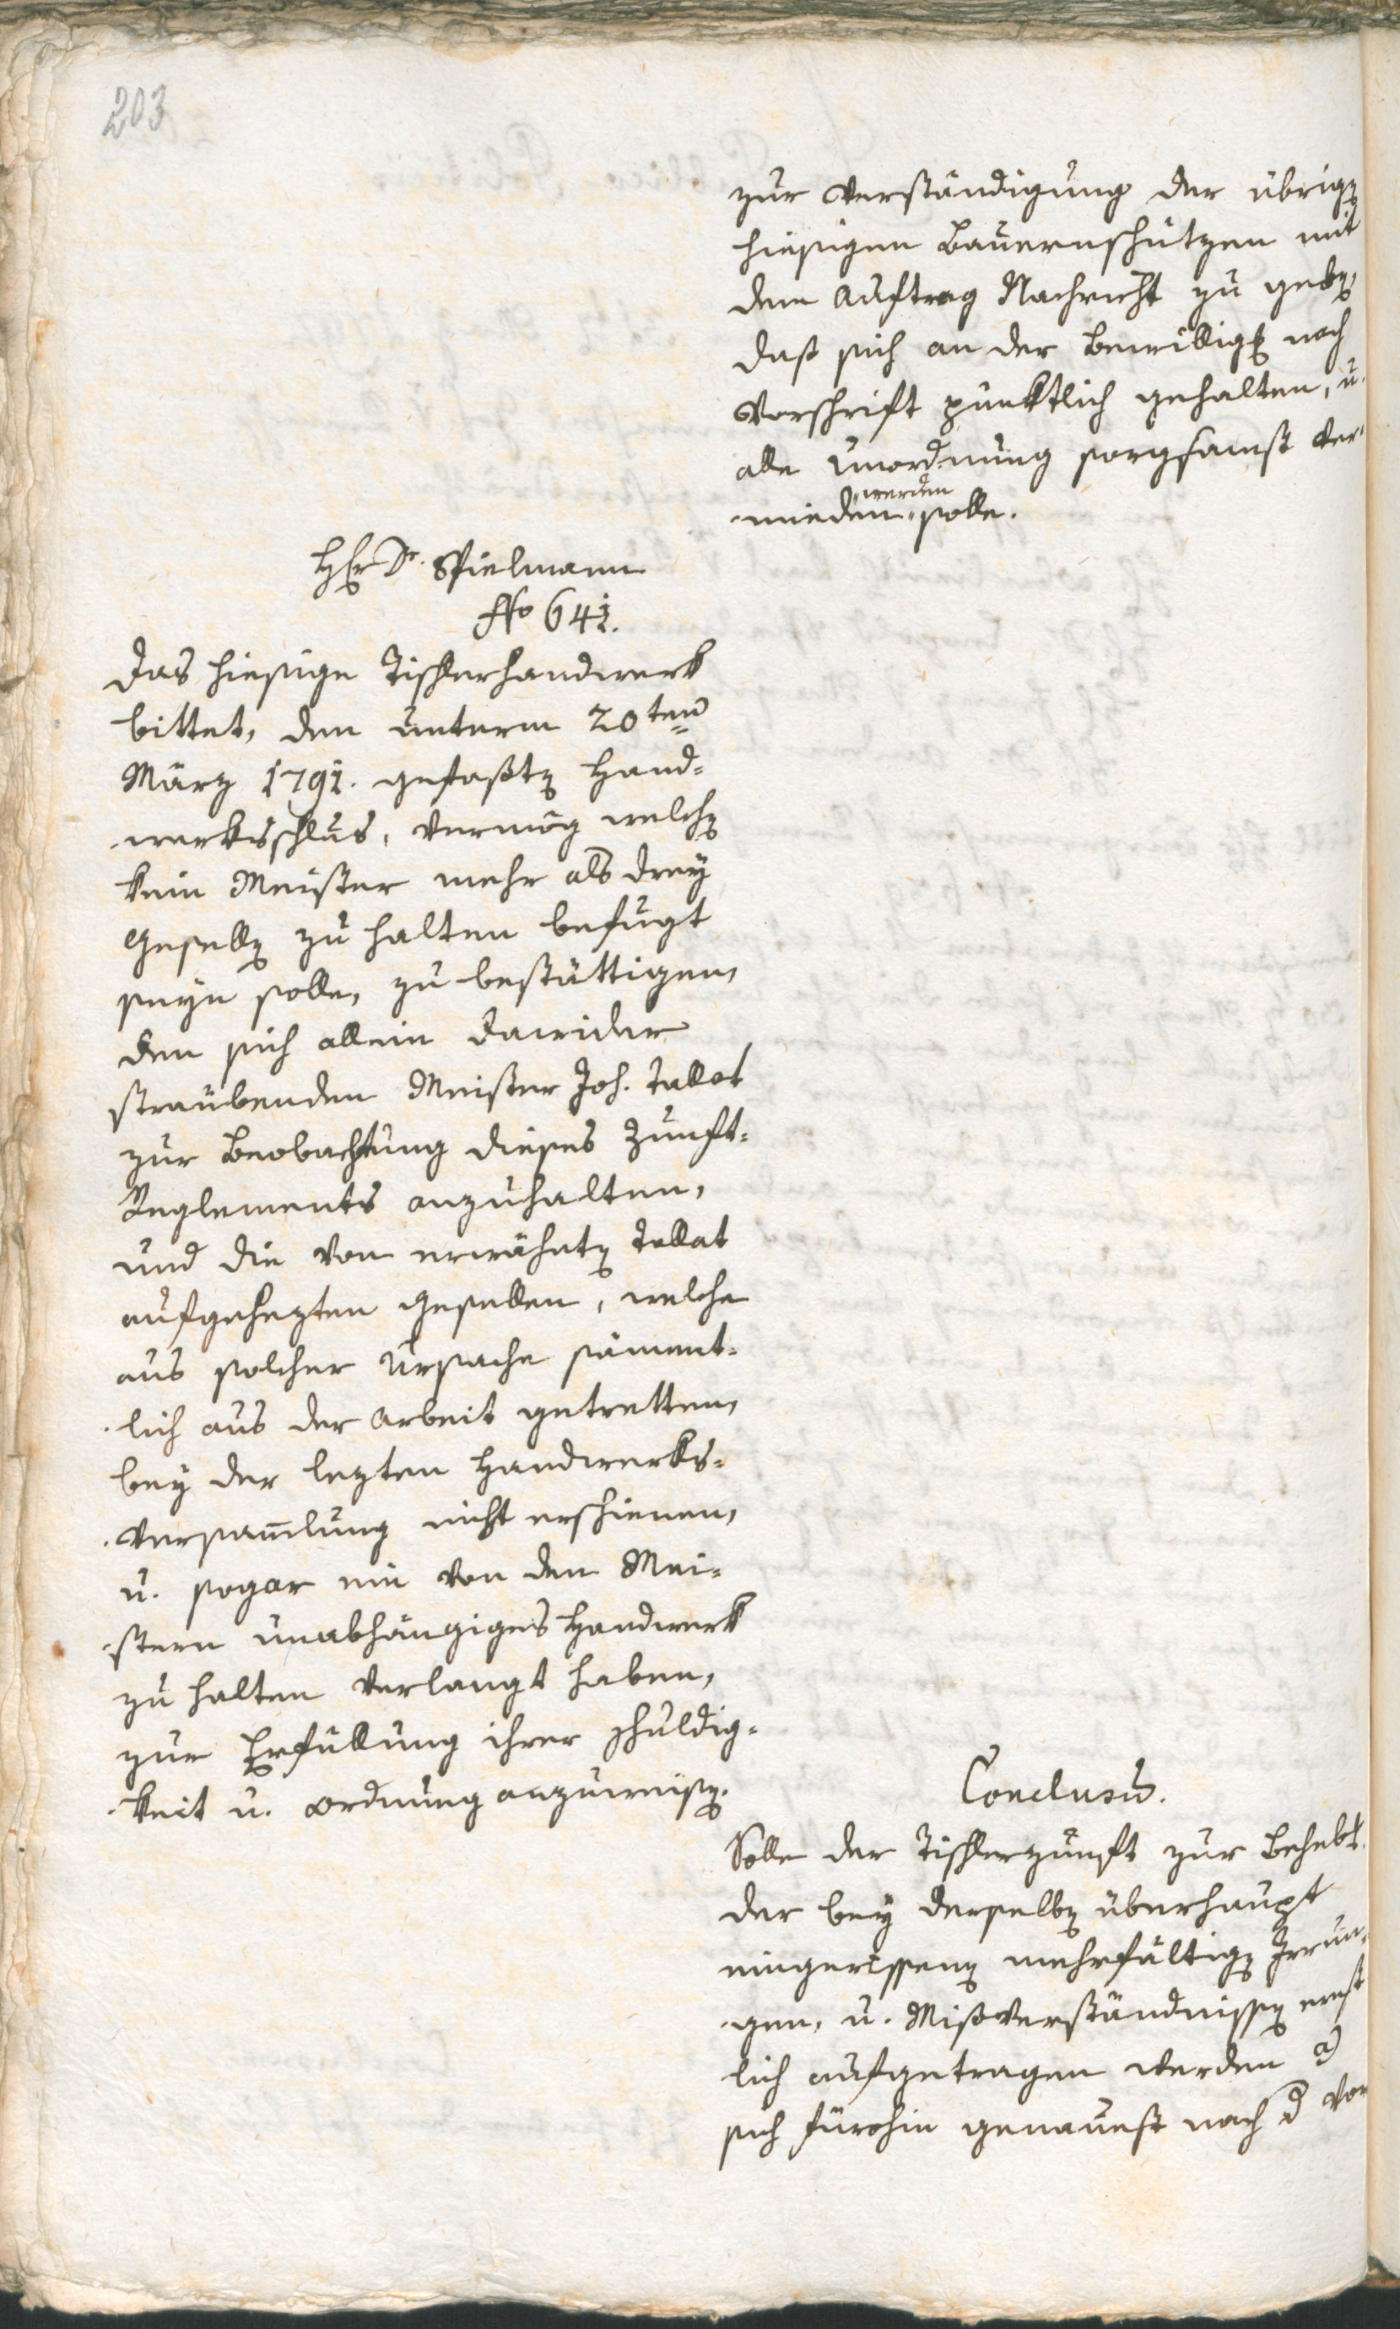 203
zur Verständigung der übrigen
hiesigen Bauernschützen mit
dem Auftrag Nachricht zu geben,
daß sich an der Bewilligg nach
Vorschrift pünktlich gehalten, u.
alle Unordnung sorgsamst ver-
werden
mieden solle.
Hr Dr. Spielmann
No 641.
Das hiesige Tischlerhandwerk
bittet, den unterm 20ten
März 1791. gefaßten Hand-
werksschlus, vermög welchen
kein Meister mehr als drey
Gesellen zu halten befugt
seyn solle, zu bestättigen,
den sich allein dawider
sträubenden Meister Joh. Tallat
zur Beobachtung dieses Zunft-
Reglements anzuhalten,
und die von erwähnten Tallat
aufgehezten Gesellen, welche
aus solcher Ursache sämmt-
lich aus der Arbeit getretten,
bey der lezten Handwerks-
versammlung nicht erschienen,
u. sogar ein von den Mei-
stern unabhängiges Handwerk
zu halten verlangt haben,
zur Erfüllung ihrer Schuldig-
keit u. Ordnung anzuweisen.
Conclusum.
Solle der Tischlerzunft zur Behebg.
der bey derselben überhaupt
eingerissenen mehrfältigen Irrun-
gen, u. Mißverständnissen ernst
lich aufgetragen werden
sich fürohin genauest nach d vor